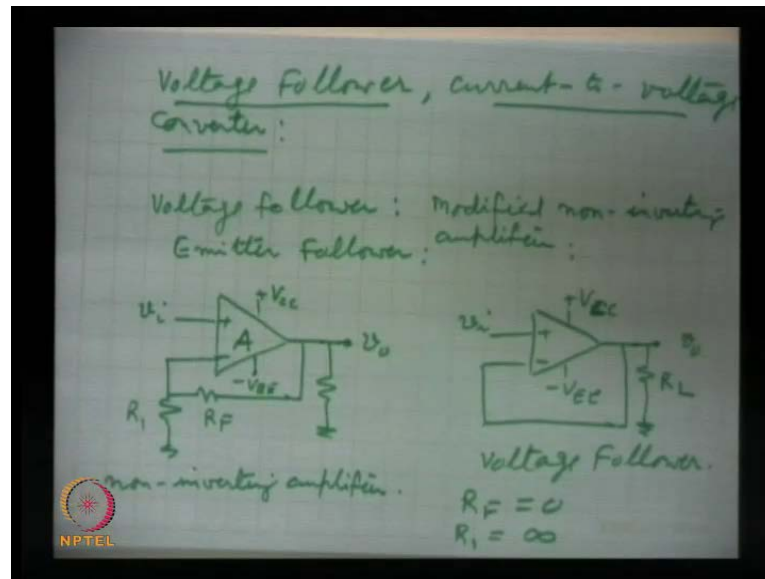 Voltage Follower, current-to-voltage
Converter:
Voltage follower: Modified non-inverting
amplifier:
Emitter Follower:
vi + A - +VCC -VEE vo
R1 RF
non-inverting amplifier.
vi + - +VCC -VEE vo
RL
Voltage Follower.
RF = 0
R1 = ∞
NPTEL